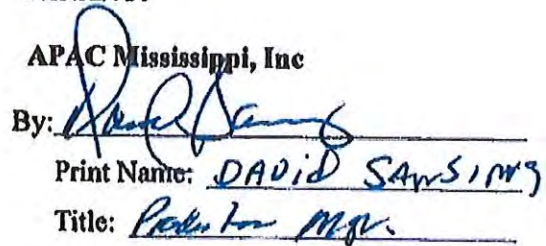 APAC Mississippi, Inc
By:
Print Name: DAVID SANSING
Title: Production Mgr.